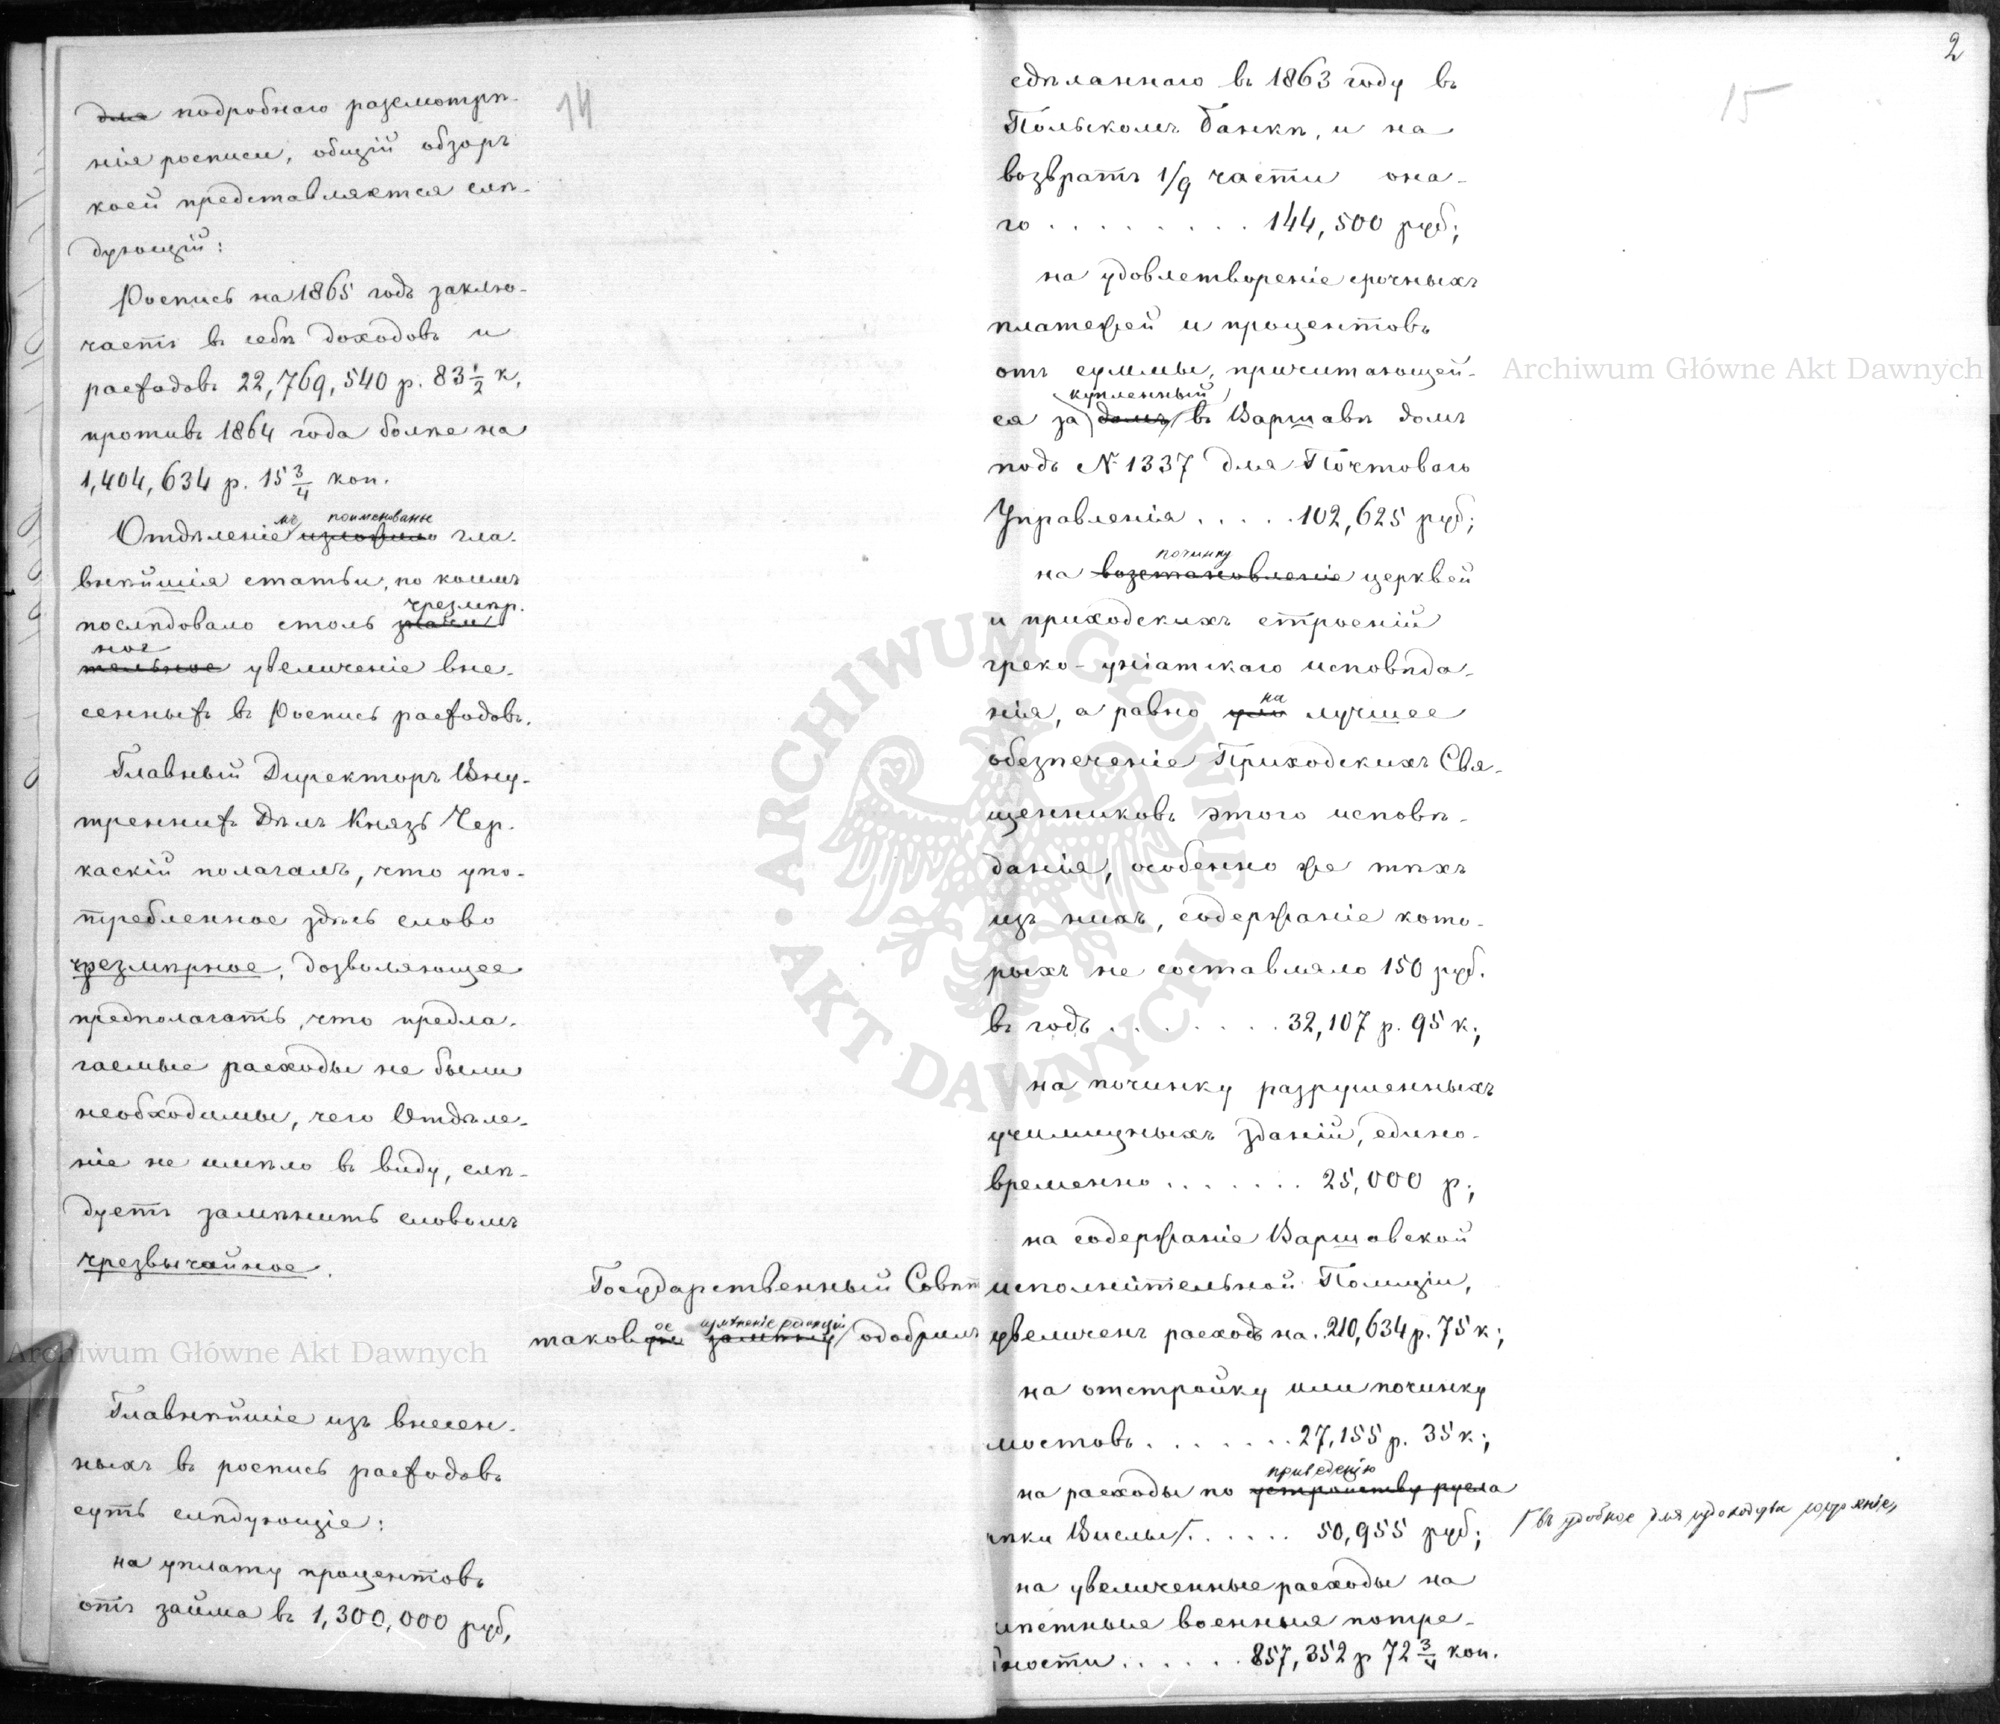 14
для подробнаго разсмотрѣ-
нія росписи, общій обзоръ
коей представляется слѣ-
дующій:
Роспись на 1865 годъ заклю-
чаетъ въ себѣ доходовъ и
расходовъ 22,769,540 р. 83 1/2 к.
противъ 1864 года болѣе на
1,404,634 р. 15 3/4 коп.
Отдѣленіе мъ поименованы изложило гла-
внѣйшія статьи, по коимъ
послѣдовало столь чрезмѣр-
ное тельное увеличеніе вне-
сенныхъ въ Роспись расходовъ.
Главный Директоръ Вну-
треннихъ Дѣлъ Князь Чер-
каскій полагалъ, что упо-
требленное здѣсь слово
чрезмѣрное, дозволяющее
предполагать, что предла-
гаемые расходы не были
необходимы, чего Отдѣле-
ніе не имѣло въ виду, слѣ-
дуетъ замѣнить словомъ
чрезвычайное.
Государственный Совѣтъ
таковое измѣненіе редакціи замѣну одобрилъ
Главнѣйшіе изъ внесен-
ныхъ въ роспись расходовъ
суть слѣдующіе:
на уплату процентовъ
отъ займа въ 1,300,000 руб,
2
15
сдѣланнаго въ 1863 году въ
Польскомъ Банкѣ, и на
возвратъ 1/9 части она-
го . . . . . . . . 144,500 руб;
на удовлетвореніе срочныхъ
платежей и процентовъ
отъ суммы, причитающей-
ся за купленный домъ въ Варшавѣ домъ
подъ № 1337 для Почтоваго
Управленія . . . . . 102,625 руб;
на починку возстановленіе церквей
и приходскихъ строеній
греко-уніатскаго исповѣда-
нія, а равно на лучшее
обезпеченіе Приходскихъ Свя-
щенниковъ этого исповѣ-
данія, особенно же тѣхъ
изъ нихъ, содержаніе кото-
рыхъ не составляло 150 руб.
въ годъ . . . . . . . 32,107 р. 95 к;
на починку разрушенныхъ
училищныхъ зданій, едино-
временно . . . . . . . 25,000 р;
на содержаніе Варшавской
исполнительной Полиціи,
увеличенъ расходъ на . 210,634 р. 75 к;
на отстройку или починку
мостовъ . . . . . . . 27,155 р. 35 к;
на расходы по приведенію устройству русла
рѣки Вислы . . . . . . 50,955 руб;
въ удобное для судоходства
на увеличенные расходы на
смѣтныя военныя потре-
бности . . . . . . 857,352 р 72 3/4 коп.
Archiwum Główne Akt Dawnych
Archiwum Główne Akt Dawnych
ARCHIWUM GŁÓWNE AKT DAWNYCH